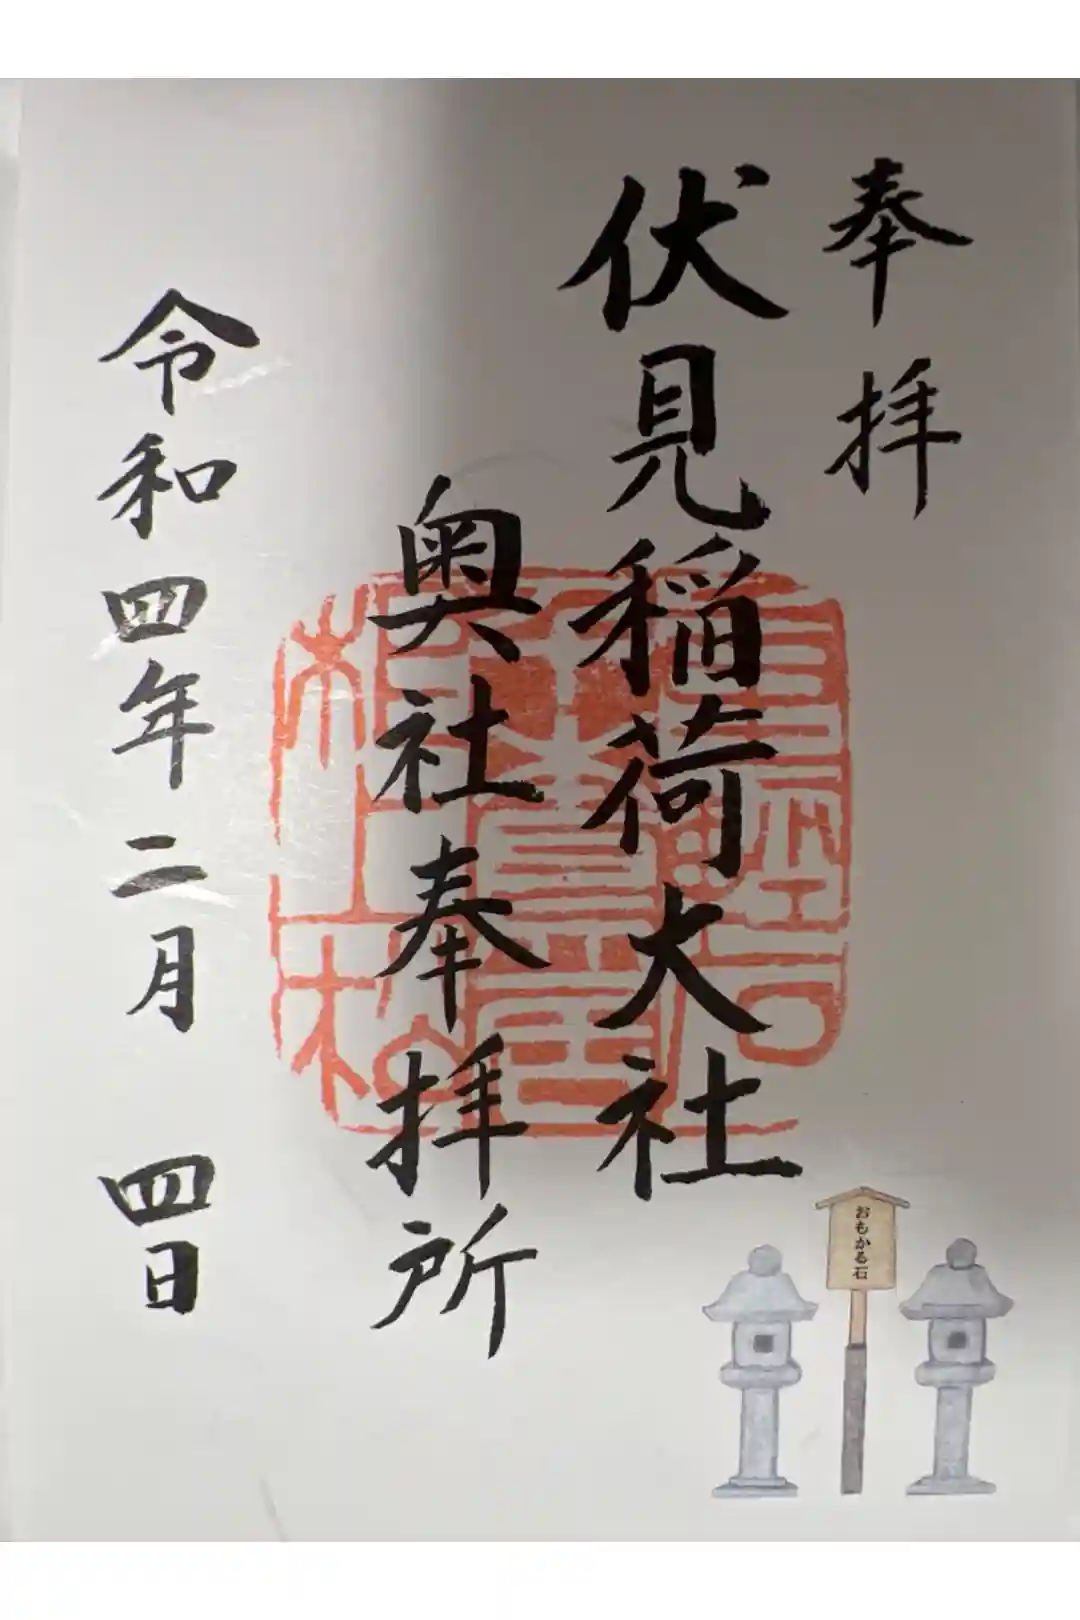 奉拝
伏見稲荷大社
奥社奉拝所
令和四年二月 四日
おもかる石